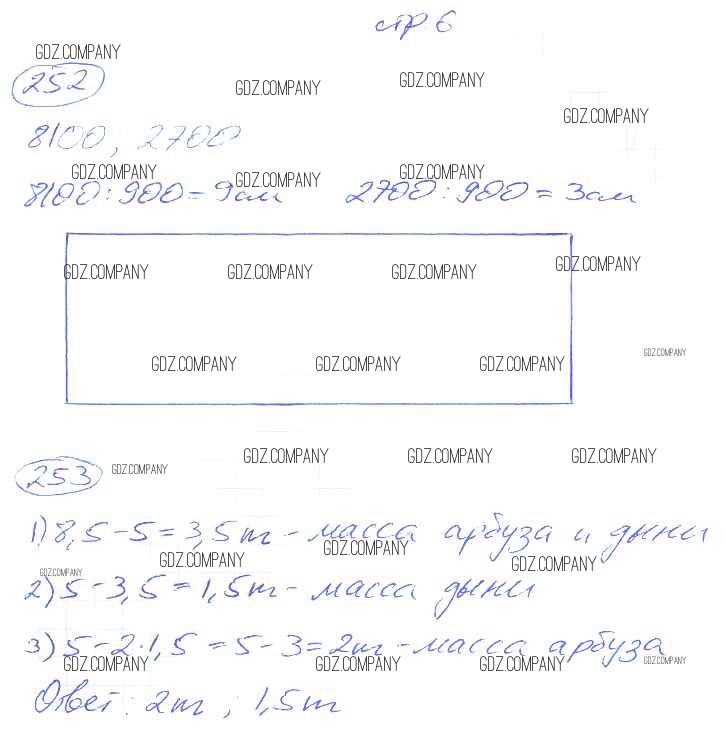 стр 6
GDZ.COMPANY
252
GDZ.COMPANY GDZ.COMPANY
GDZ.COMPANY
8100; 2700
GDZ.COMPANY GDZ.COMPANY GDZ.COMPANY
8100 : 900 = 9 см 2700 : 900 = 3 см
GDZ.COMPANY GDZ.COMPANY GDZ.COMPANY GDZ.COMPANY
GDZ.COMPANY GDZ.COMPANY GDZ.COMPANY GDZ.COMPANY
GDZ.COMPANY GDZ.COMPANY GDZ.COMPANY
253 GDZ.COMPANY
1) 8,5 - 5 = 3,5 т - масса арбуза и дыни
GDZ.COMPANY GDZ.COMPANY GDZ.COMPANY
GDZ.COMPANY
2) 5 - 3,5 = 1,5 т - масса дыни
3) 5 - 2·1,5 = 5 - 3 = 2 т - масса арбуза
GDZ.COMPANY GDZ.COMPANY GDZ.COMPANY GDZ.COMPANY
Ответ: 2 т ; 1,5 т